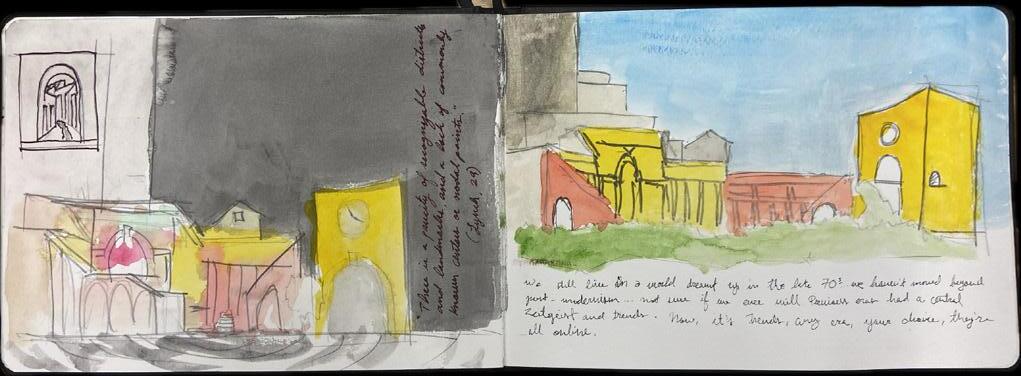 "There is a paucity of recognizable districts
and landmarks, and a lack of commonly
known centers or nodal points."
(Lynch, 29)
we still live in a world dreamt up in the late 70s we haven't moved beyond
post-modernism... not sure if we ever will Because once had a central
Zeitgeist and trends. Now, it's trends, any era, your choice, they're
all online.